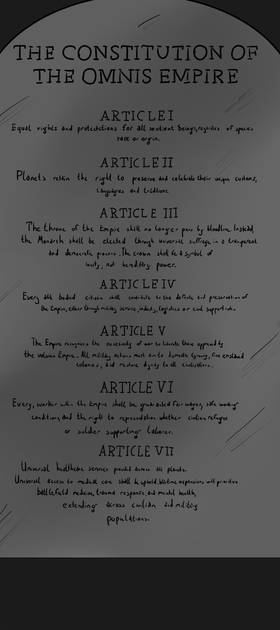 THE CONSTITUTION OF
THE OMNIS EMPIRE
ARTICLE I
Equal rights and protections for all sentient beings, regardless of species
race or origin.
ARTICLE II
Planets retain the right to preserve and celebrate their unique customs,
languages and traditions.
ARTICLE III
The throne of the Empire shall no longer pass by bloodline. Instead,
the Monarch shall be elected through universal suffrage in a transparent
and democratic process. The crown shall be a symbol of
unity, not hereditary power.
ARTICLE IV
Every able bodied citizen shall contribute to the defense and preservation of
the Empire, either through military service, industry, logistics or civil support
ARTICLE V
The Empire recognizes the necessity of war to liberate those oppressed by
the Empire. All military actions must aim to
and restore dignity to all civilizations.
ARTICLE VI
Every worker within the Empire shall be guaranteed fair wages, safe working
conditions, and the right to representation whether civilian refugee
or soldier supporting labourer.
ARTICLE VII
Universal healthcare services provided across all planets.
Universal access to medical care shall be upheld. Wartime expansions will prioritize
battlefield medicine, trauma response, and mental health,
extending across civilian and military
populations.